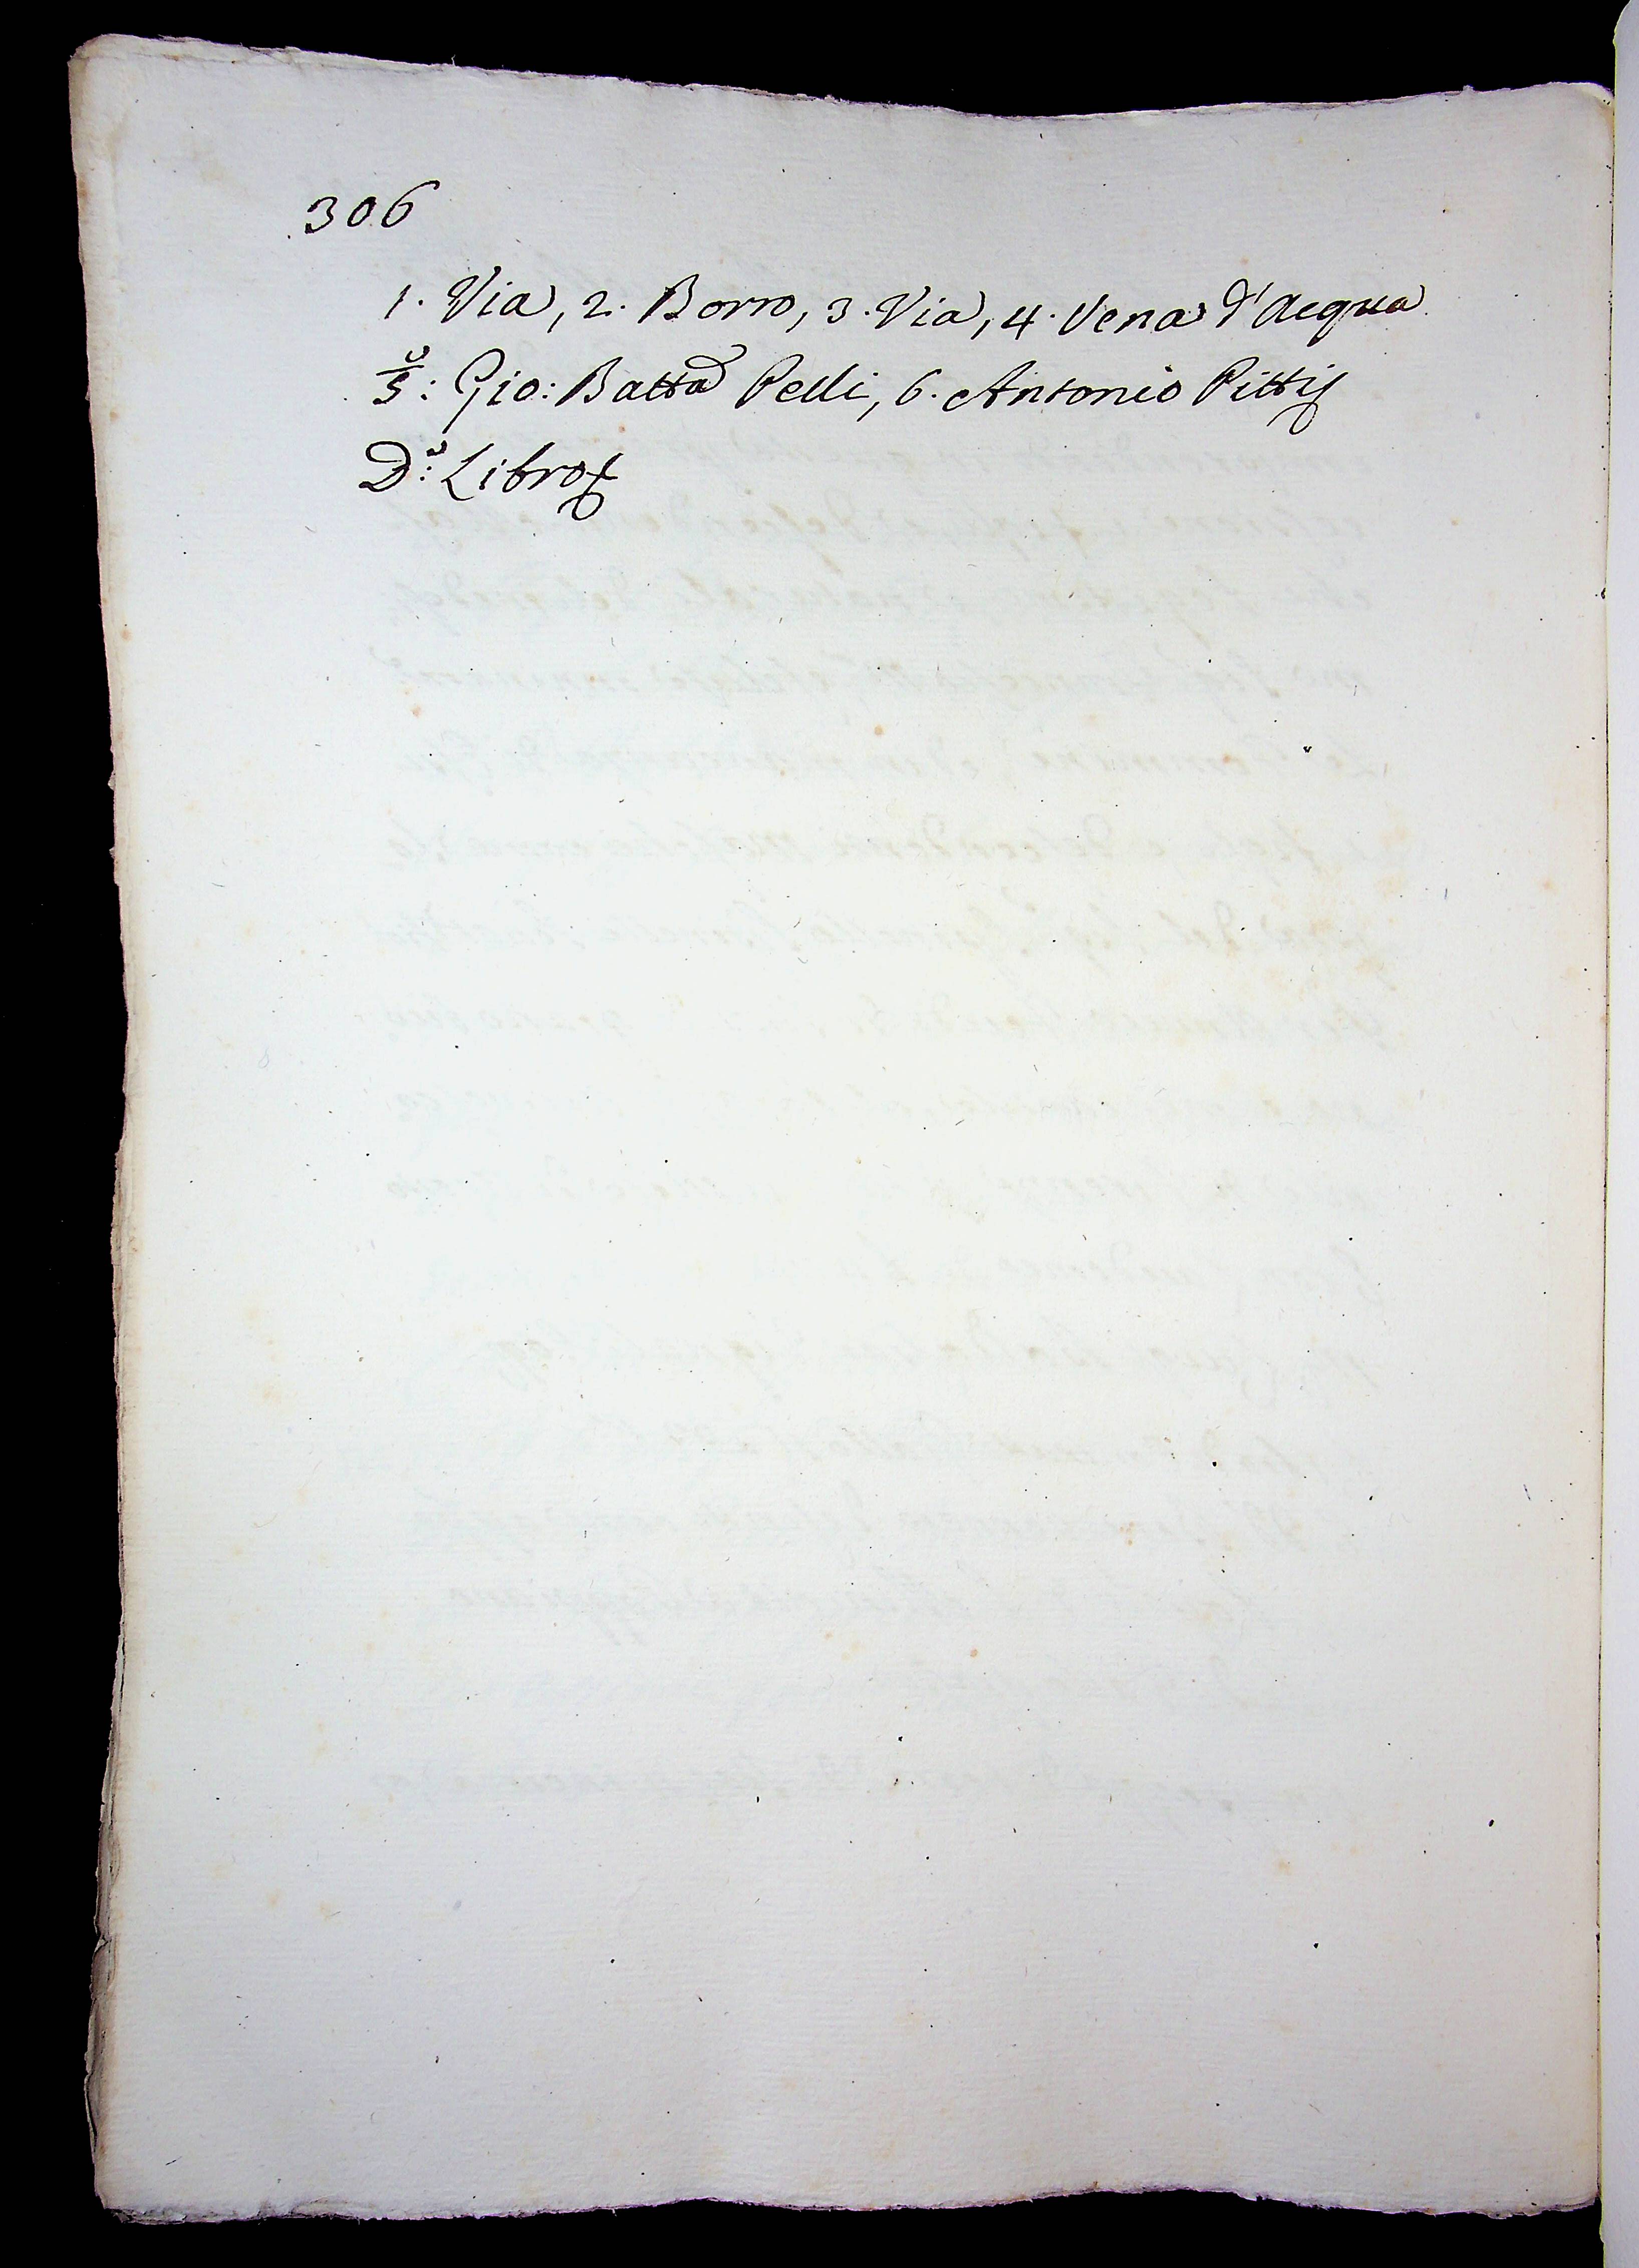 306
1. Via, 2. Borro, 3. Via, 4. Vena d'Acqua
5: Gio: Batta Pelli, 6. Antonio Pitti
Do: Libro